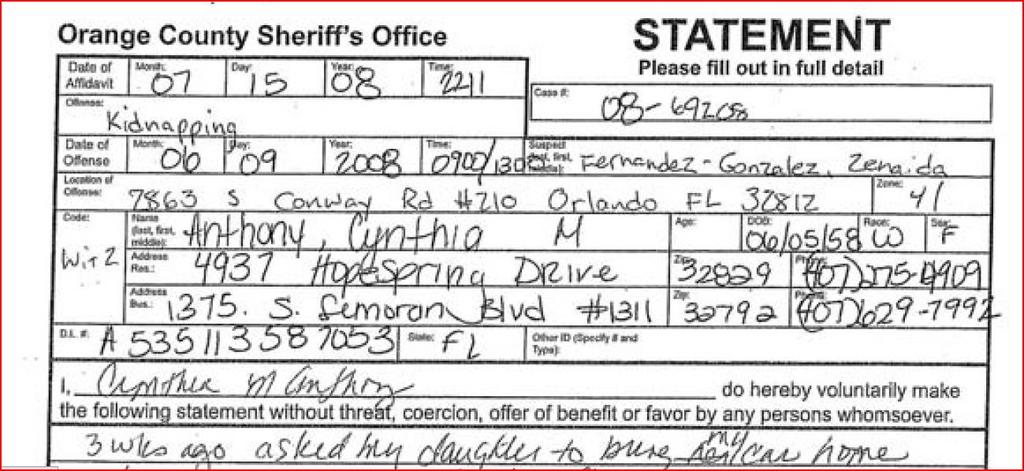 Orange County Sheriff's Office
STATEMENT
Please fill out in full detail
Date of Affidavit Month: 07 Day: 15 Year: 08 Time: 2211
Case #: 08-69208
Offense: Kidnapping
Date of Offense Month: 06 Day: 09 Year: 2008 Time: 0900/1300 Suspect (last, first, middle): Fernandez-Gonzalez, Zenaida
Location of Offense: 7863 S Conway Rd #210 Orlando FL 32812 Zone: 41
Code: Wit 2 Name (last, first, middle): Anthony, Cynthia M Age: DOB: 06/05/58 Race: W Sex: F
Address Res.: 4937 HopeSpring Drive Zip: 32829 Phone: (407)275-4909
Address Bus.: 1375. S. Semoran Blvd #1311 Zip: 32792 Phone: (407)629-7992
D.L. #: A 535113587053 State: FL Other ID (Specify # and Type):
I, Cynthia M Anthony do hereby voluntarily make
the following statement without threat, coercion, offer of benefit or favor by any persons whomsoever.
3 wks ago asked my daughter to bring my car home